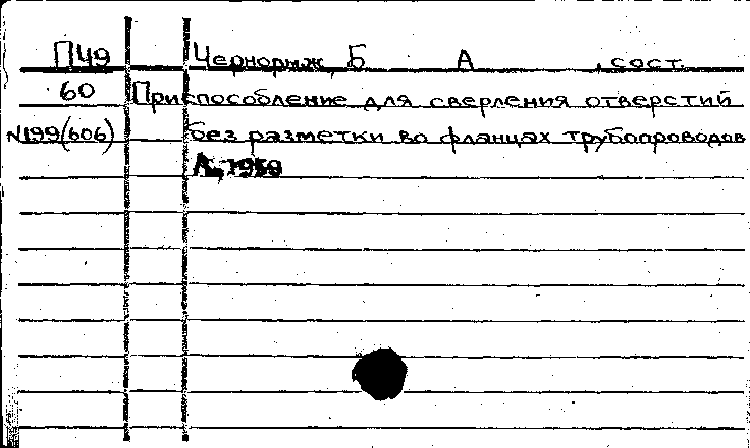 П49 Чернориж, Б А , сост.
60 Приспособление для сверления отверстий
N199(606) без разметки во фланцах трубопроводов
Л., 1959